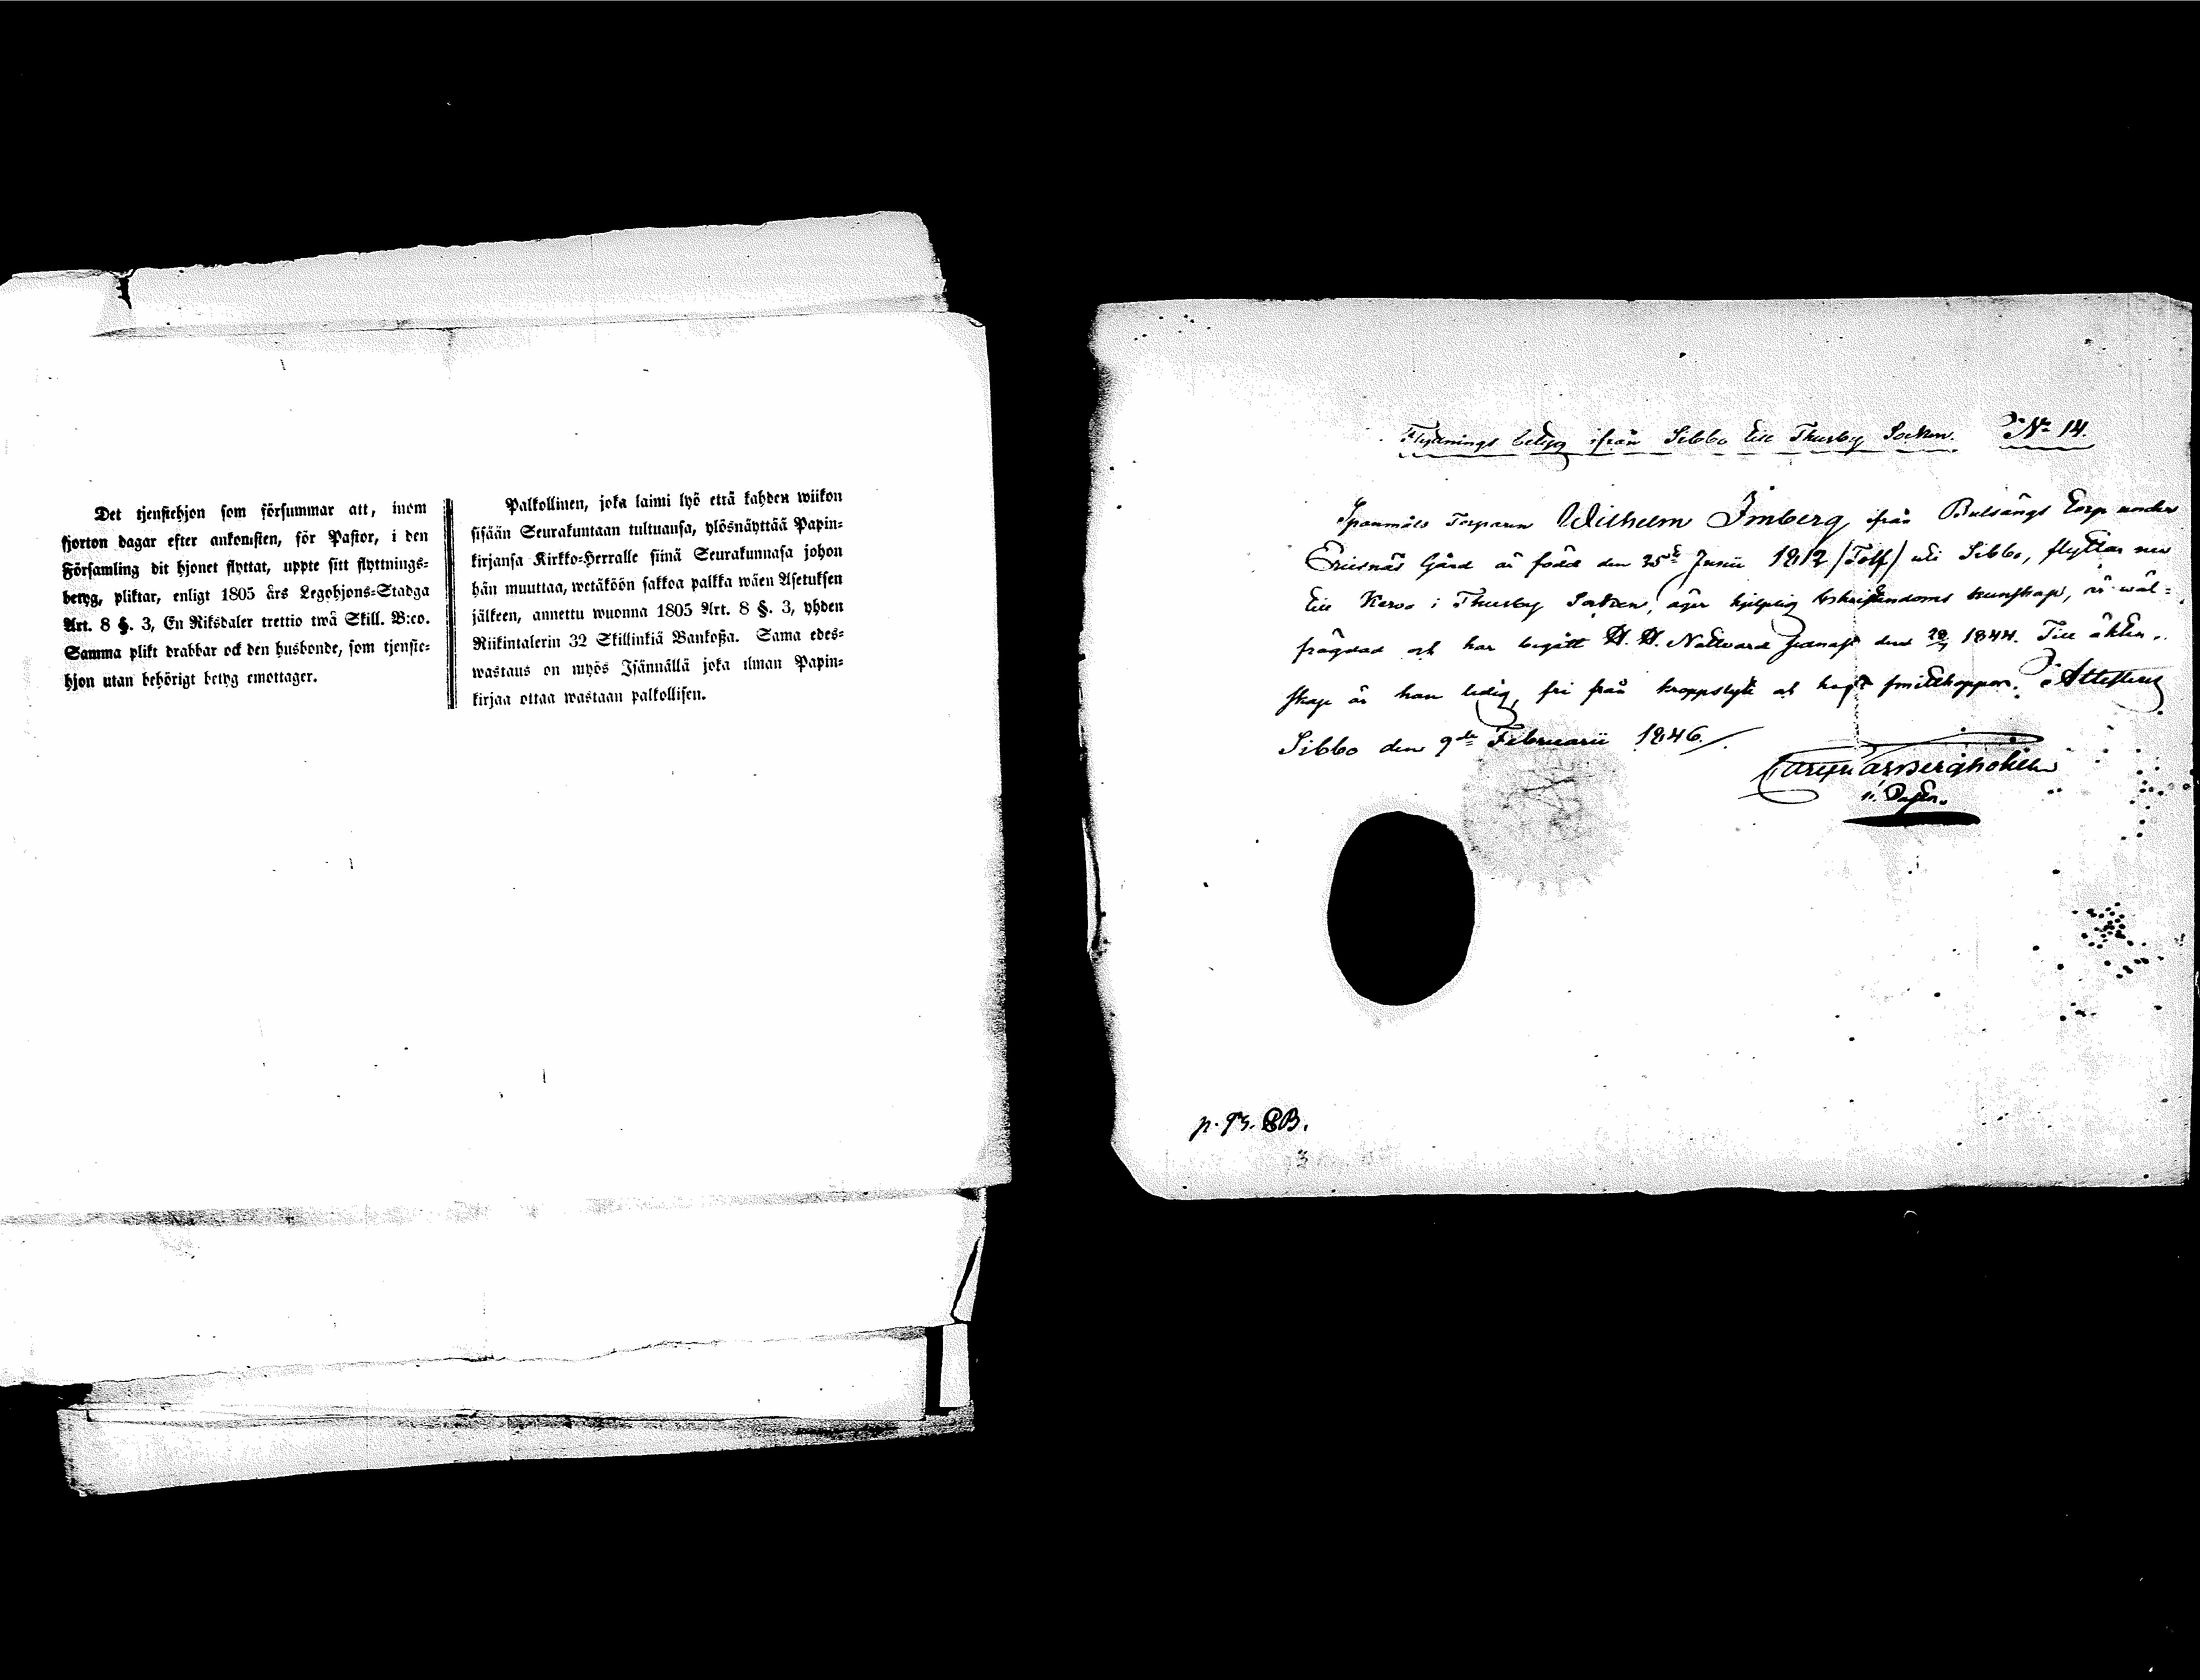 Det tjenstehjon som försummar att, inom
fjorton dagar efter ankomsten, för Pastor, i den
Församling dit hjonet flyttat, uppte sitt flyttnings=
betyg, pliktar, enligt 1805 års Legohjons=Stadga
Art. 8 §. 3, En Riksdaler trettio twå Skill. B:co.
Samma plikt drabbar ock den husbonde, som tjenste=
hjon utan behörigt betyg emottager.
Palkollinen, joka laimi lyö että kahden wiikon
sisään Seurakuntaan tultuansa, ylösnäyttää Papin=
kirjansa Kirkko=Herralle siinä Seurakunnasa johon
hän muuttaa, wetäköön sakkoa palkka wäen Asetuksen
jälkeen, annettu wuonna 1805 Art. 8 §. 3, yhden
Riikintalerin 32 Skillinkiä Bankoßa. Sama edes=
wastaus on myös Isännällä joka ilman Papin=
kirjaa ottaa wastaan palkollisen.
Flyttnings betyg ifrån Sibbo till Thusby Socken. No 14.
Spanmåls Torparen Wilhelm Imberg ifrån Bulsängs Torp under
Ericsnäs Gård är född den 25 Junii 1812 /Tolf/ uti Sibbo, flyttar nu
till Kervo i Thusby Socken, äger hjelplig Christendoms kunskap, är wäl=
frägdad och har begått H. H. Nattvard senast den 1844. Till äkten=
skap är han ledig, fri från kroppslyte och haft smittkoppor. Attesteras
Sibbo den 9de Februarii 1846.
Bergholm
v. Pastor.